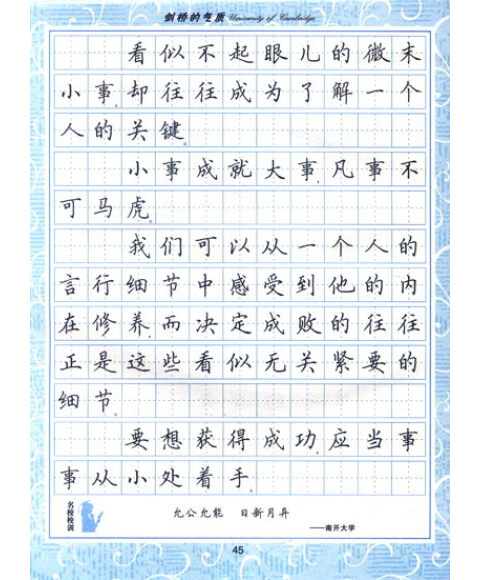 剑桥的气质 University of Cambridge
看似不起眼儿的微末
小事,却往往成为了解一个
人的关键。
小事成就大事,凡事不
可马虎。
我们可以从一个人的
言行细节中感受到他的内
在修养,而决定成败的往往
正是这些看似无关紧要的
细节。
要想获得成功,应当事
事从小处着手。
名校校训
允公允能 日新月异
——南开大学
45